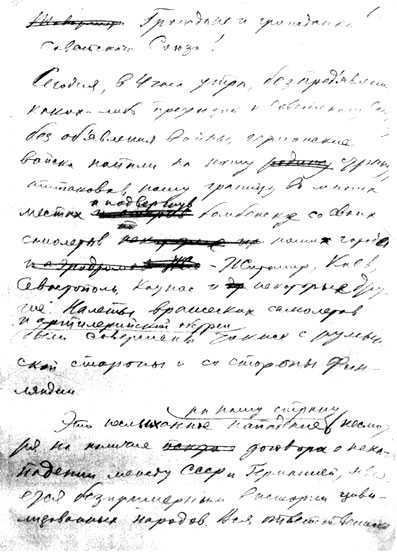 Граждане и гражданки!
Советского Союза!
Сегодня, в 4 часа утра, без предъявления
каких-либо претензий к Советскому
без объявления войны, германские
войска напали на нашу страну
атаковав нашу границу во многих
местах и подвергнув бомбежке со своих
самолетов наши города
- Житомир, Киев
Севастополь, Каунас и некоторые дру-
гие. Налеты вражеских самолетов
и артиллерийский обстрел
были совершены также с румын-
ской стороны и со стороны Фин-
ляндии
Это неслыханное нападение на нашу страну несмот-
ря на наличие договора о нена-
падении между СССР и Германией, яв-
ляется беспримерным в истории циви-
лизованных народов. Вся ответственность